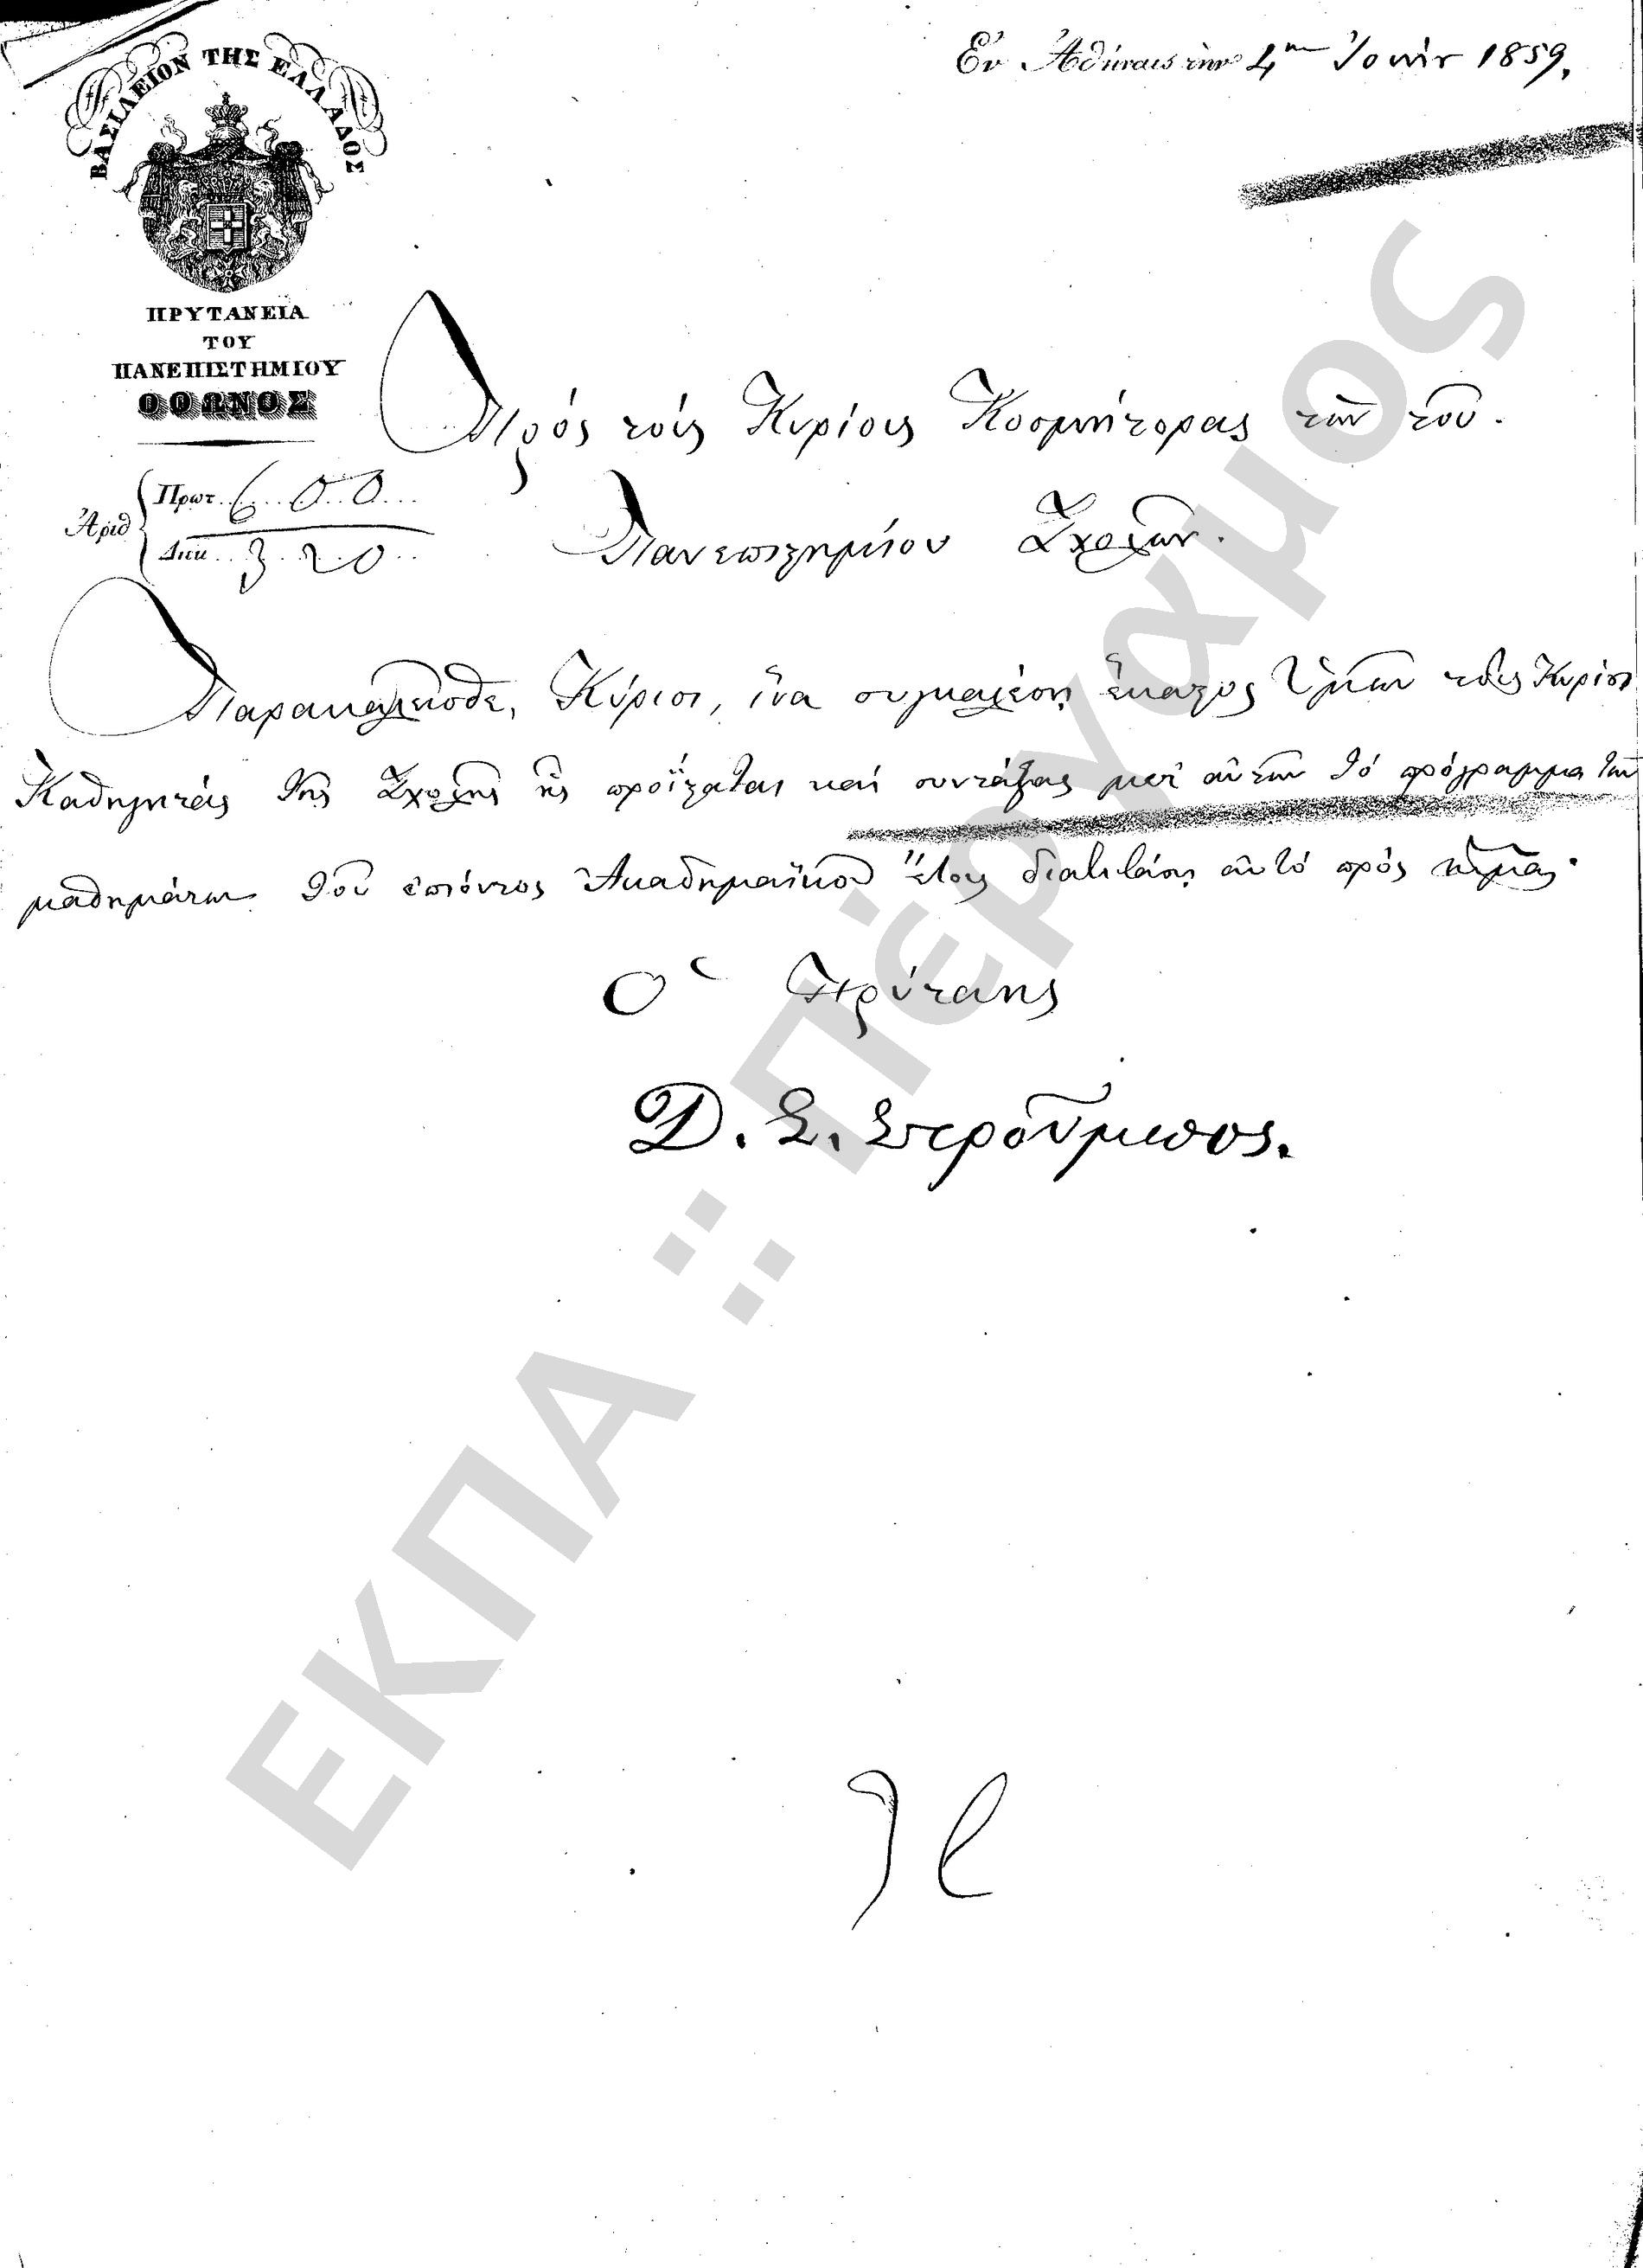 ΒΑΣΙΛΕΙΟΝ ΤΗΣ ΕΛΛΑΔΟΣ
ΠΡΥΤΑΝΕΙΑ
ΤΟΥ
ΠΑΝΕΠΙΣΤΗΜΙΟΥ
ΟΘΩΝΟΣ
Ἀριθ
Πρωτ. 600
Διεκ. 320
Ἐν Ἀθήναις τὴν 4ην Ἰουνίου 1859.
Πρὸς τοὺς Κυρίους Κοσμήτορας τῶν τοῦ
Πανεπιστημίου Σχολῶν.
Παρακαλεῖσθε, Κύριοι, ἵνα συγκαλέσῃ ἕκαστος Ὑμῶν τοὺς Κυρίους
Καθηγητὰς τῆς Σχολῆς ἧς προΐσταται καὶ συντάξας μετ' αὐτῶν τὸ πρόγραμμα τῶν
μαθημάτων τοῦ ἐπιόντος Ἀκαδημαϊκοῦ Ἔτους διαβιβάσῃ αὐτὸ πρὸς ἡμᾶς.
Ὁ Πρύτανις
Δ. Σ. Στροῦμπος.
ΕΚΠΑ :: Πέργαμος